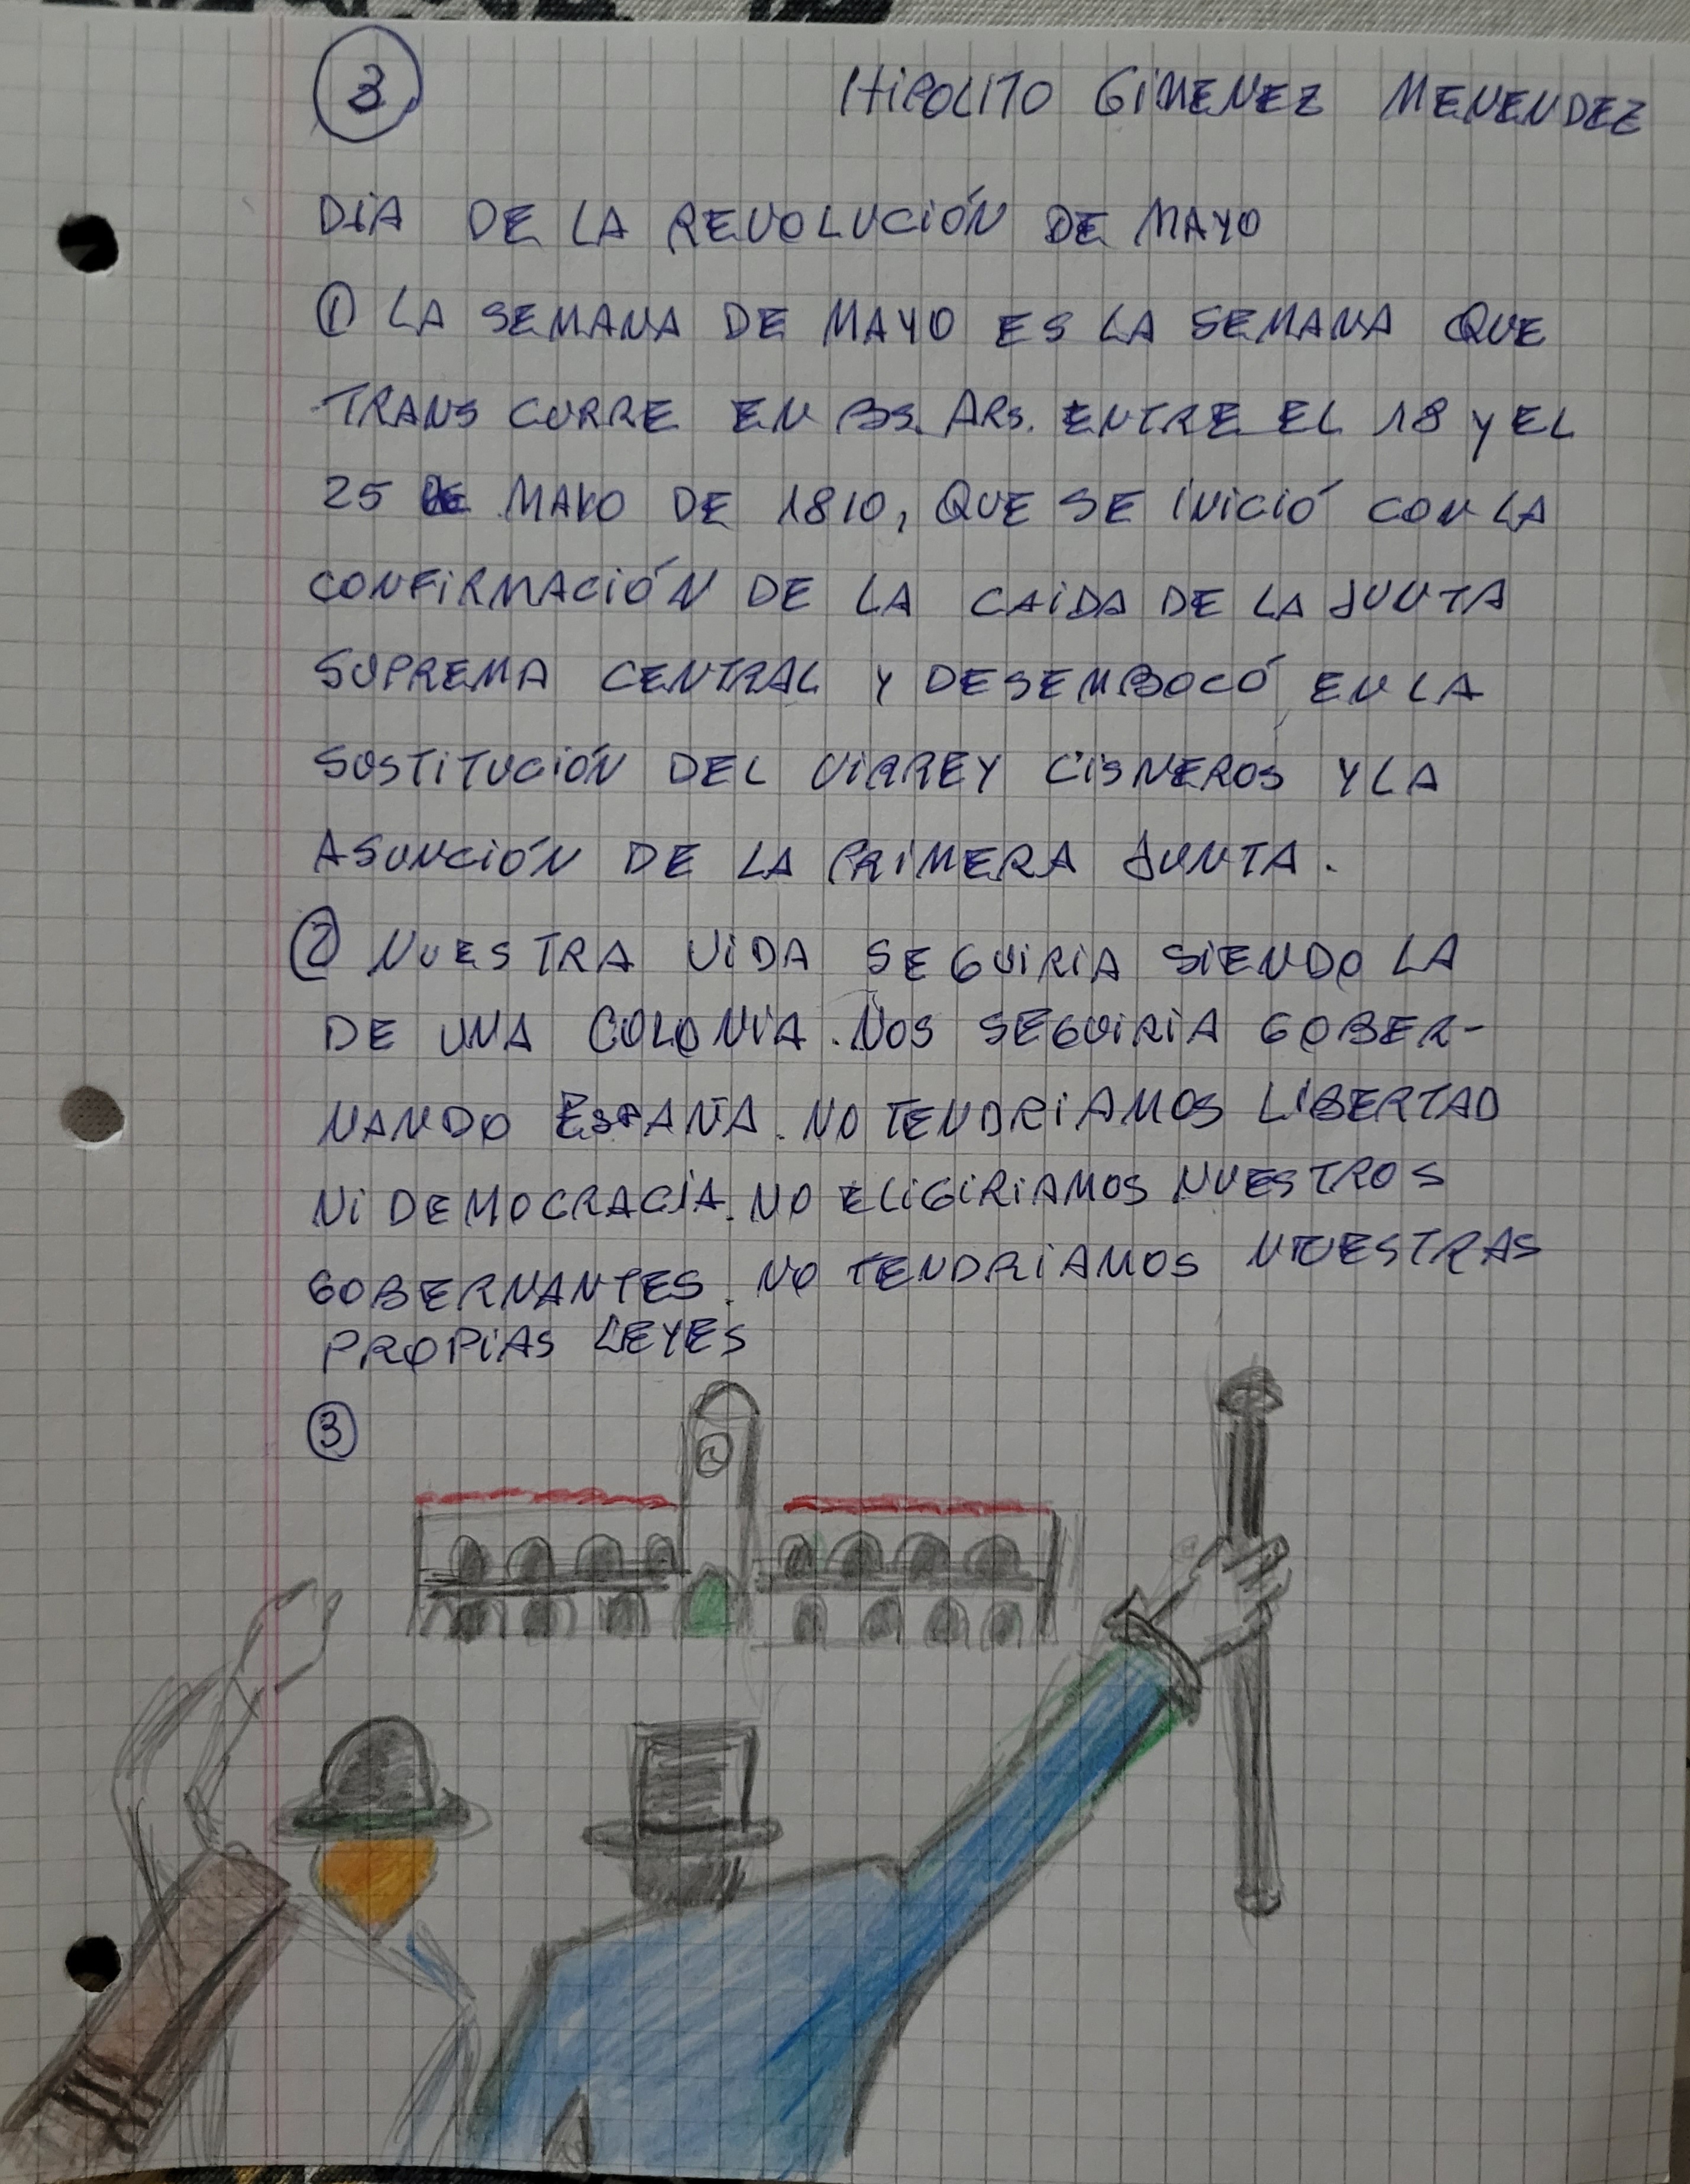 3
HIPOLITO GIMENEZ MENENDEZ
DIA DE LA REVOLUCIÓN DE MAYO
① LA SEMANA DE MAYO ES LA SEMANA QUE
TRANS CURRE EN BS. ARS. ENTRE EL 18 Y EL
25 DE MAYO DE 1810, QUE SE INICIÓ CON LA
CONFIRMACIÓN DE LA CAIDA DE LA JUNTA
SUPREMA CENTRAL Y DESEMBOCÓ EN LA
SUSTITUCIÓN DEL VIRREY CISNEROS Y LA
ASUNCIÓN DE LA PRIMERA JUNTA.
② NUESTRA VIDA SEGUIRIA SIENDO LA
DE UNA COLONIA. NOS SEGUIRIA GOBER-
NANDO ESPAÑA. NO TENDRIAMOS LIBERTAD
NI DEMOCRACIA. NO ELIGIRIAMOS NUESTROS
GOBERNANTES. NO TENDRIAMOS NUESTRAS
PROPIAS LEYES
③